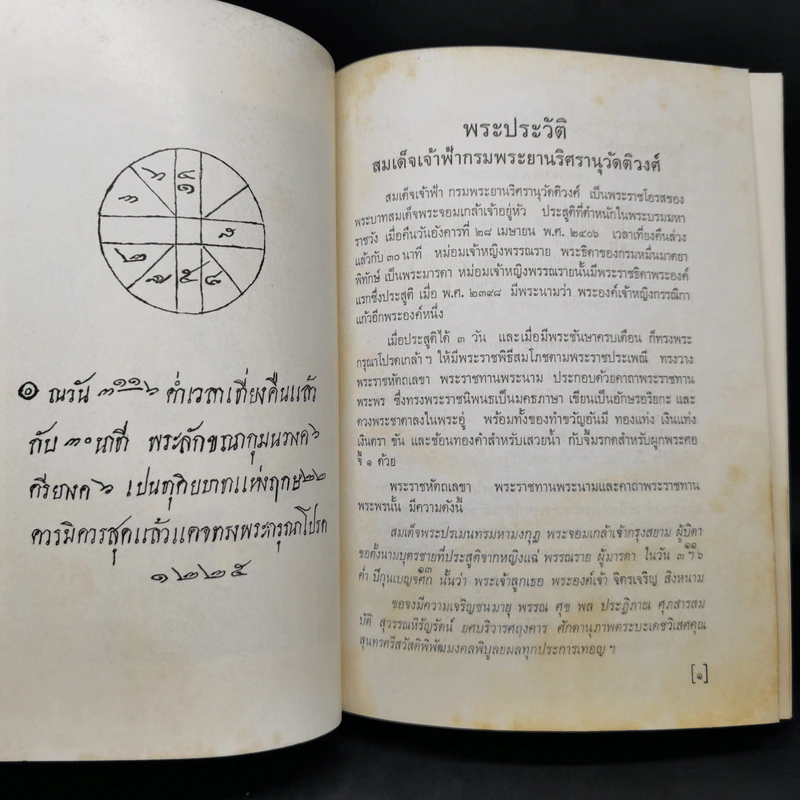 ๖ ๕
๓ ๑
๘
๒ ๗ ๕ ๔
๏ ณวัน ๓ ๑๑ ๖ ค่ำเวลาเที่ยงคืนแล้ว
กับ ๓๐ นาที พระลักขณากุม
เปน แห่งฤกษ ๒๒
ควรมิควรสุดแล้วแต่จทรงพระกรุณาโปรด
๑๒๒๕
พระประวัติ
สมเด็จเจ้าฟ้ากรมพระยานริศรานุวัดติวงศ์
สมเด็จเจ้าฟ้า กรมพระยานริศรานุวัดติวงศ์ เป็นพระราชโอรสของ
พระบาทสมเด็จพระจอมเกล้าเจ้าอยู่หัว ประสูติที่ตำหนักในพระบรมมหา
ราชวัง เมื่อคืนวันอังคารที่ ๒๘ เมษายน พ.ศ. ๒๔๐๖ เวลาเที่ยงคืนล่วง
แล้วกับ ๓๐ นาที หม่อมเจ้าหญิงพรรณราย พระธิดาของกรมหมื่นมาตยา
พิทักษ์ เป็นพระมารดา หม่อมเจ้าหญิงพรรณรายนั้นมีพระราชธิดาพระองค์
แรกซึ่งประสูติ เมื่อ พ.ศ. ๒๓๙๘ มีพระนามว่า พระองค์เจ้าหญิงกรรณิกา
แก้วอีกพระองค์หนึ่ง
เมื่อประสูติได้ ๓ วัน และเมื่อมีพระชันษาครบเดือน ก็ทรงพระ
กรุณาโปรดเกล้า ฯ ให้มีพระราชพิธีสมโภชตามพระราชประเพณี ทรงวาง
พระราชหัตถเลขา พระราชทานพระนาม ประกอบด้วยคาถาพระราชทาน
พระพร ซึ่งทรงพระราชนิพนธเป็นมคธภาษา เขียนเป็นอักษรอริยกะ และ
ดวงพระชาตาลงในพระอู่ พร้อมทั้งของทำขวัญอันมี ทองแท่ง เงินแท่ง
เงินตรา ขัน และช้อนทองคำสำหรับเสวยน้ำ กับจี้มรกตสำหรับผูกพระศอ
จี้ ๑ ด้วย
พระราชหัตถเลขา พระราชทานพระนามและคาถาพระราชทาน
พระพรนั้น มีความดังนี้
สมเด็จพระปรเมนทรมหามงกุฎ พระจอมเกล้าเจ้ากรุงสยาม ผู้บิดา
ขอตั้งนามบุตรชายที่ประสูติจากหญิงแฉ่ พรรณราย ผู้มารดา ในวัน ๓ ๑๑ ๖
ค่ำ ปีกุนเบญจศก นั้นว่า พระเจ้าลูกเธอ พระองค์เจ้า จิตรเจริญ สิงหนาม
ขอจงมีความเจริญชนมายุ พรรณ ศุข พล ปรฏิภาณ ศุภสารสม
บัติ สุวรรณหิรัญรัตน์ ยศบริวารศฤงคาร ศักดานุภาพตระบะเดชวิเสศคุณ
สุนทรศรีสวัสดิพิพัฒมงคลพิบูลยผลทุกประการเทอญ ฯ
[๑]